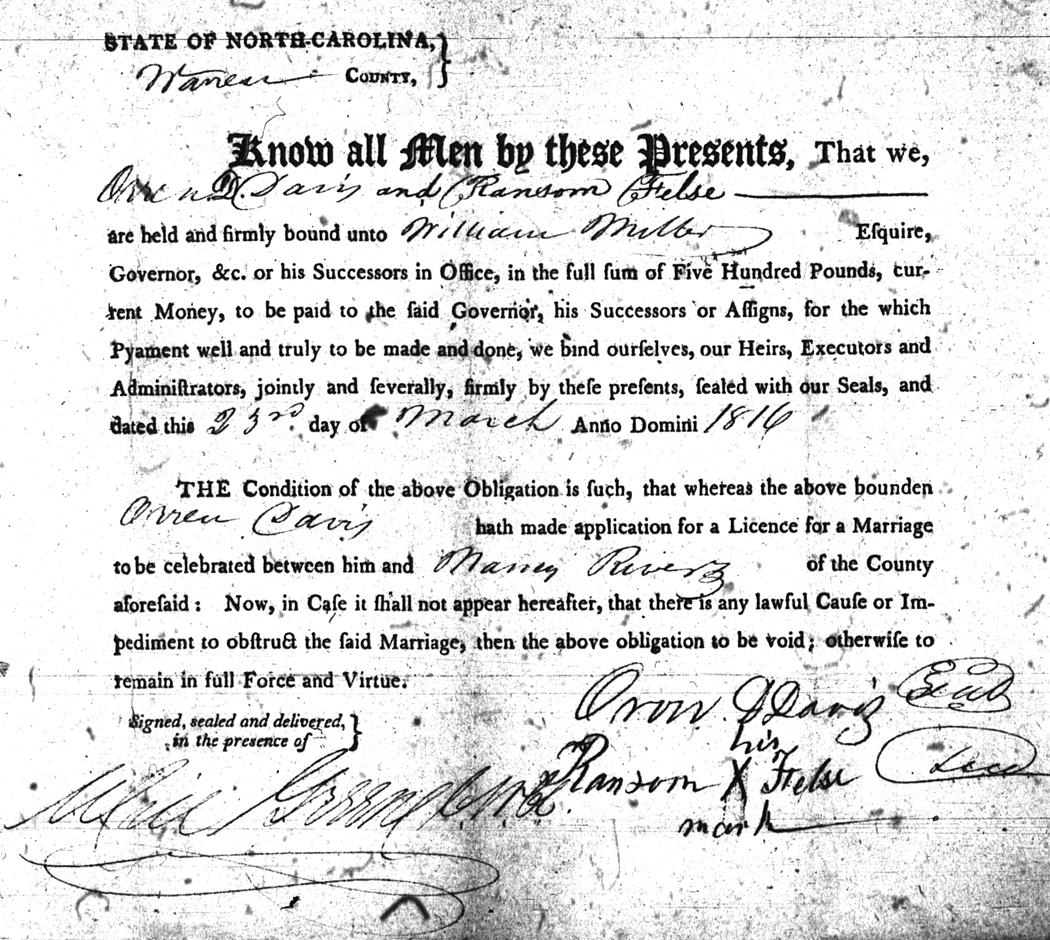 STATE OF NORTH-CAROLINA,
Warren COUNTY,
Know all Men by these Presents, That we,
Orren D. Davis and Ransom Felse
are held and firmly bound unto William Miller Eſquire,
Governor, &c. or his Succeſſors in Office, in the full ſum of Five Hundred Pounds, cur-
rent Money, to be paid to the ſaid Governor, his Succeſſors or Aſſigns, for the which
Pyament well and truly to be made and done, we bind ourſelves, our Heirs, Executors and
Adminiſtrators, jointly and ſeverally, firmly by theſe preſents, ſealed with our Seals, and
dated this 23rd. day of March Anno Domini 1816
THE Condition of the above Obligation is ſuch, that whereas the above bounden
Orren Davis hath made application for a Licence for a Marriage
to be celebrated between him and Rivers of the County
aforeſaid: Now, in Caſe it ſhall not appear hereafter, that there is any lawful Cauſe or Im-
pediment to obſtruct the ſaid Marriage, then the above obligation to be void; otherwiſe to
remain in full Force and Virtue.
Signed, sealed and delivered,
in the presence of
Orow. D Davis Seal
his
Ransom X Felse Seal
mark